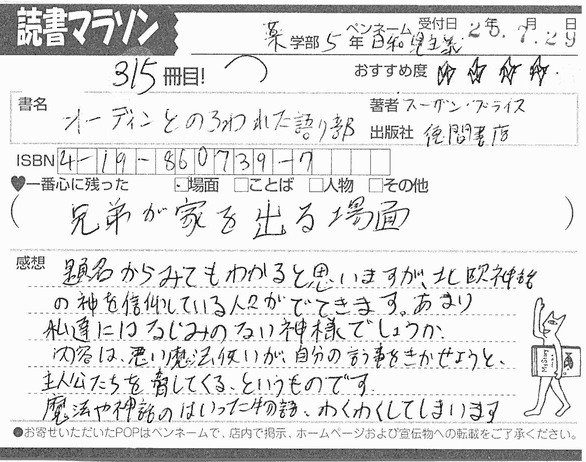 読書マラソン
薬学部5年 ペンネーム 日和見主義 受付日 20.7.29 年 月 日
315冊目! おすすめ度 ☆☆☆☆
書名 オーディンとのろわれた語り部 著者 スーザン・プライス
出版社 徳間書店
ISBN 4-19-860739-7
♥一番心に残った □場面 □ことば □人物 □その他
(兄弟が家を出る場面)
感想 題名からみてもわかると思いますが、北欧神話
の神を信仰している人々がでてきます。あまり
私達にはなじみのない神様でしょうか。
内容は、悪い魔法使いが、自分の言う事をきかせようと、
主人公たちを脅してくる、というものです。
魔法や神話のはいった物語、わくわくしてしまいます
●お寄せいただいたPOPはペンネームで、店内で掲示、ホームページおよび宣伝物への転載をご了承ください。